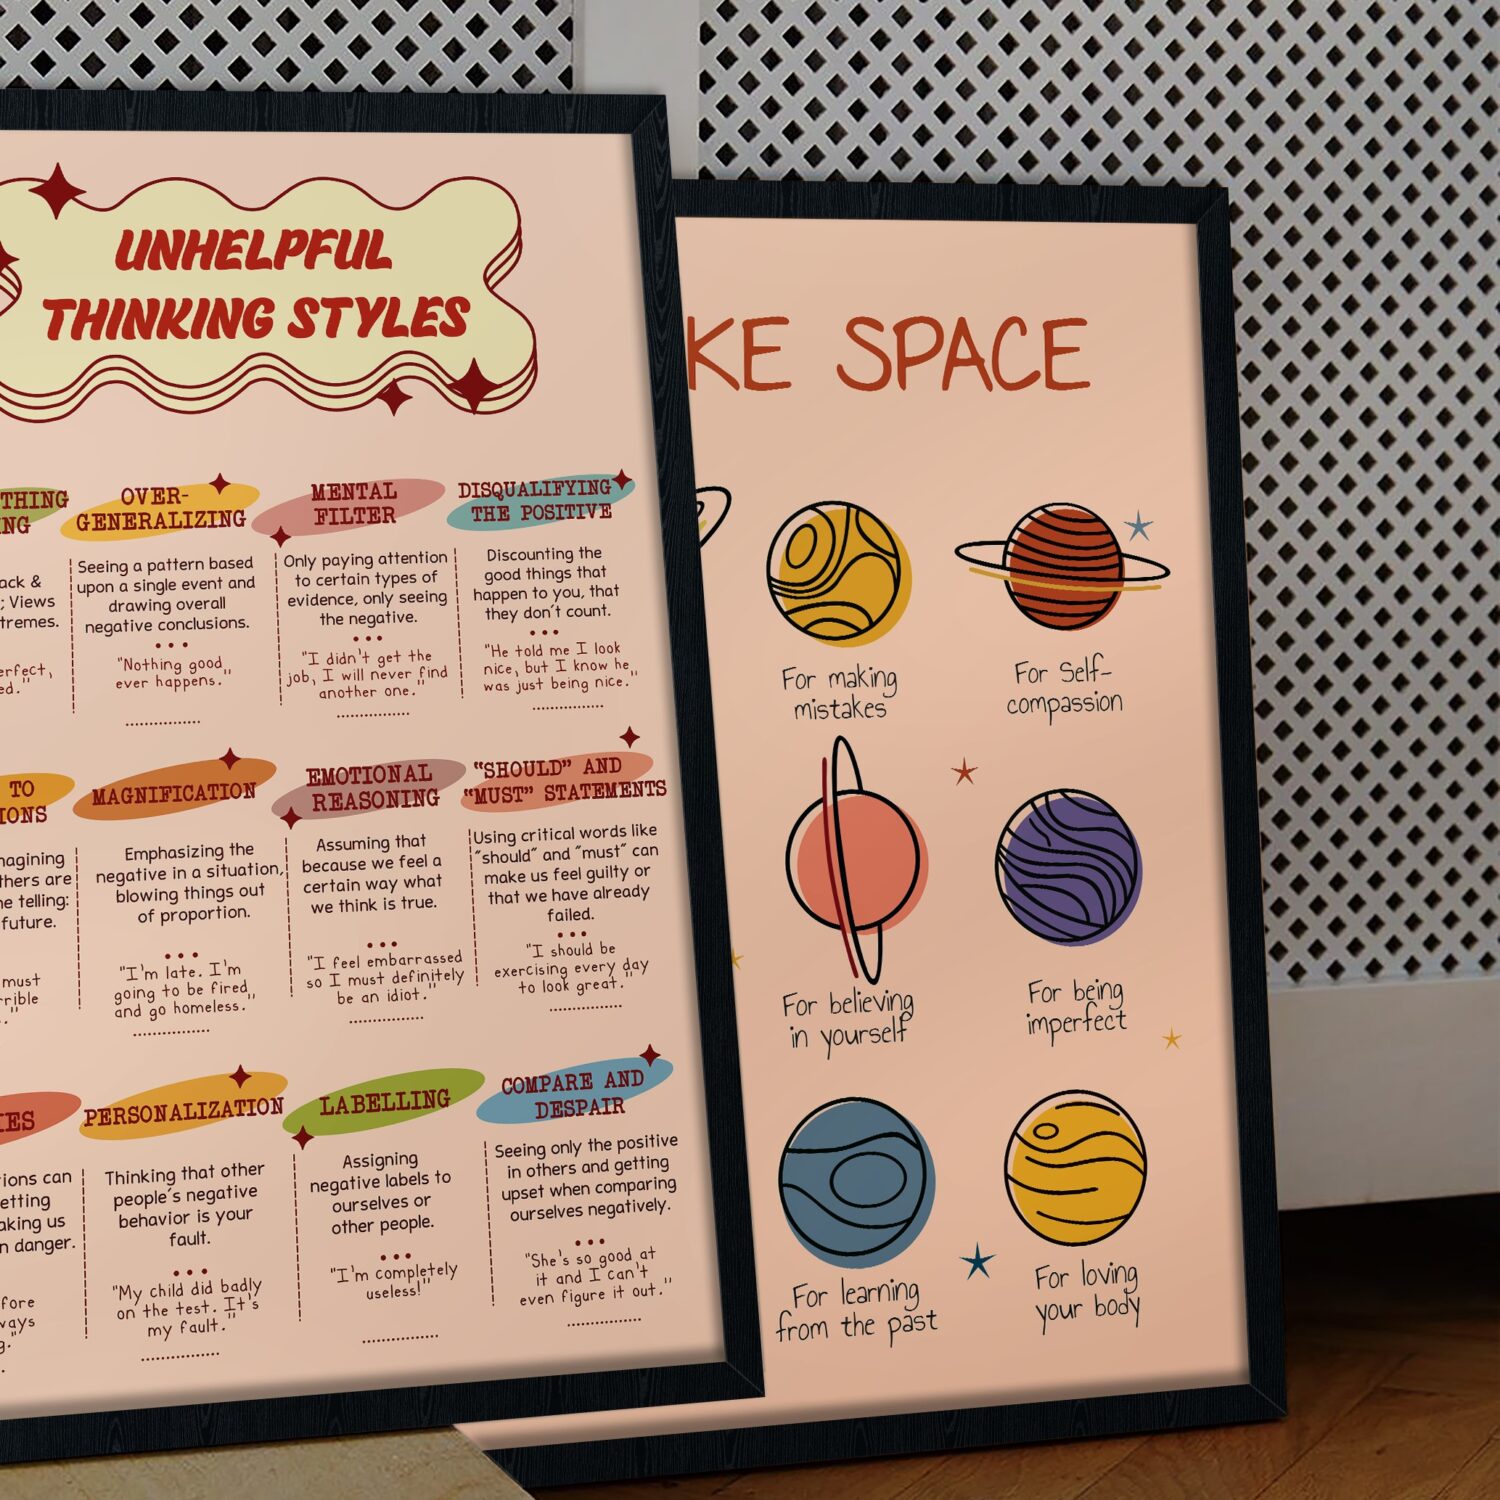 UNHELPFUL
THINKING STYLES
THING
NG
ack &
; Views
tremes.
erfect,
ed."
OVER-
GENERALIZING
Seeing a pattern based
upon a single event and
drawing overall
negative conclusions.
"Nothing good
ever happens."
MENTAL
FILTER
Only paying attention
to certain types of
evidence, only seeing
the negative.
"I didn't get the
job, I will never find
another one."
DISQUALIFYING
THE POSITIVE
Discounting the
good things that
happen to you, that
they don't count.
"He told me I look
nice, but I know he
was just being nice."
TO
IONS
nagining
thers are
ne telling:
future.
must
rrible
."
MAGNIFICATION
Emphasizing the
negative in a situation,
blowing things out
of proportion.
"I'm late. I'm
going to be fired
and go homeless."
EMOTIONAL
REASONING
Assuming that
because we feel a
certain way what
we think is true.
"I feel embarrassed
so I must definitely
be an idiot."
"SHOULD" AND
"MUST" STATEMENTS
Using critical words like
"should" and "must" can
make us feel guilty or
that we have already
failed.
"I should be
exercising every day
to look great."
IES
tions can
etting
aking us
n danger.
fore
ways
g."
PERSONALIZATION
Thinking that other
people's negative
behavior is your
fault.
"My child did badly
on the test. It's
my fault."
LABELLING
Assigning
negative labels to
ourselves or
other people.
"I'm completely
useless!"
COMPARE AND
DESPAIR
Seeing only the positive
in others and getting
upset when comparing
ourselves negatively.
"She's so good at
it and I can't
even figure it out."
KE SPACE
For making
mistakes
For Self-
compassion
For believing
in yourself
For being
imperfect
For learning
from the past
For loving
your body